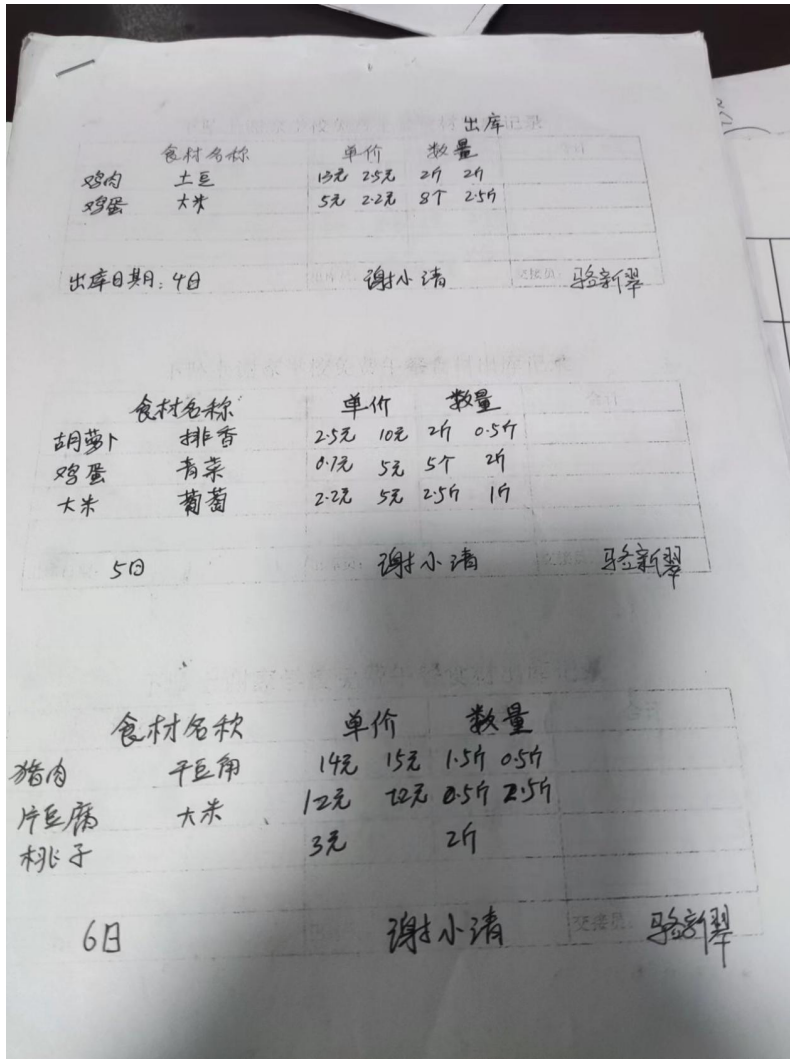 出库记录
食材名称 单价 数量
鸡肉 土豆 13元 2.5元 2斤 2斤
鸡蛋 大米 5元 2.2元 8个 2.5斤
出库日期:4日 谢小清 交接员: 骆新翠
食材名称 单价 数量 合计
胡萝卜 排香 2.5元 10元 2斤 0.5斤
鸡蛋 青菜 0.7元 5元 5个 2斤
大米 葡萄 2.2元 5元 2.5斤 1斤
5日 谢小清 交接员: 骆新翠
食材名称 单价 数量
猪肉 干豆角 14元 15元 1.5斤 0.5斤
片豆腐 大米 12元 2.2元 0.5斤 2.5斤
桃子 3元 2斤
6日 谢小清 交接员: 骆新翠